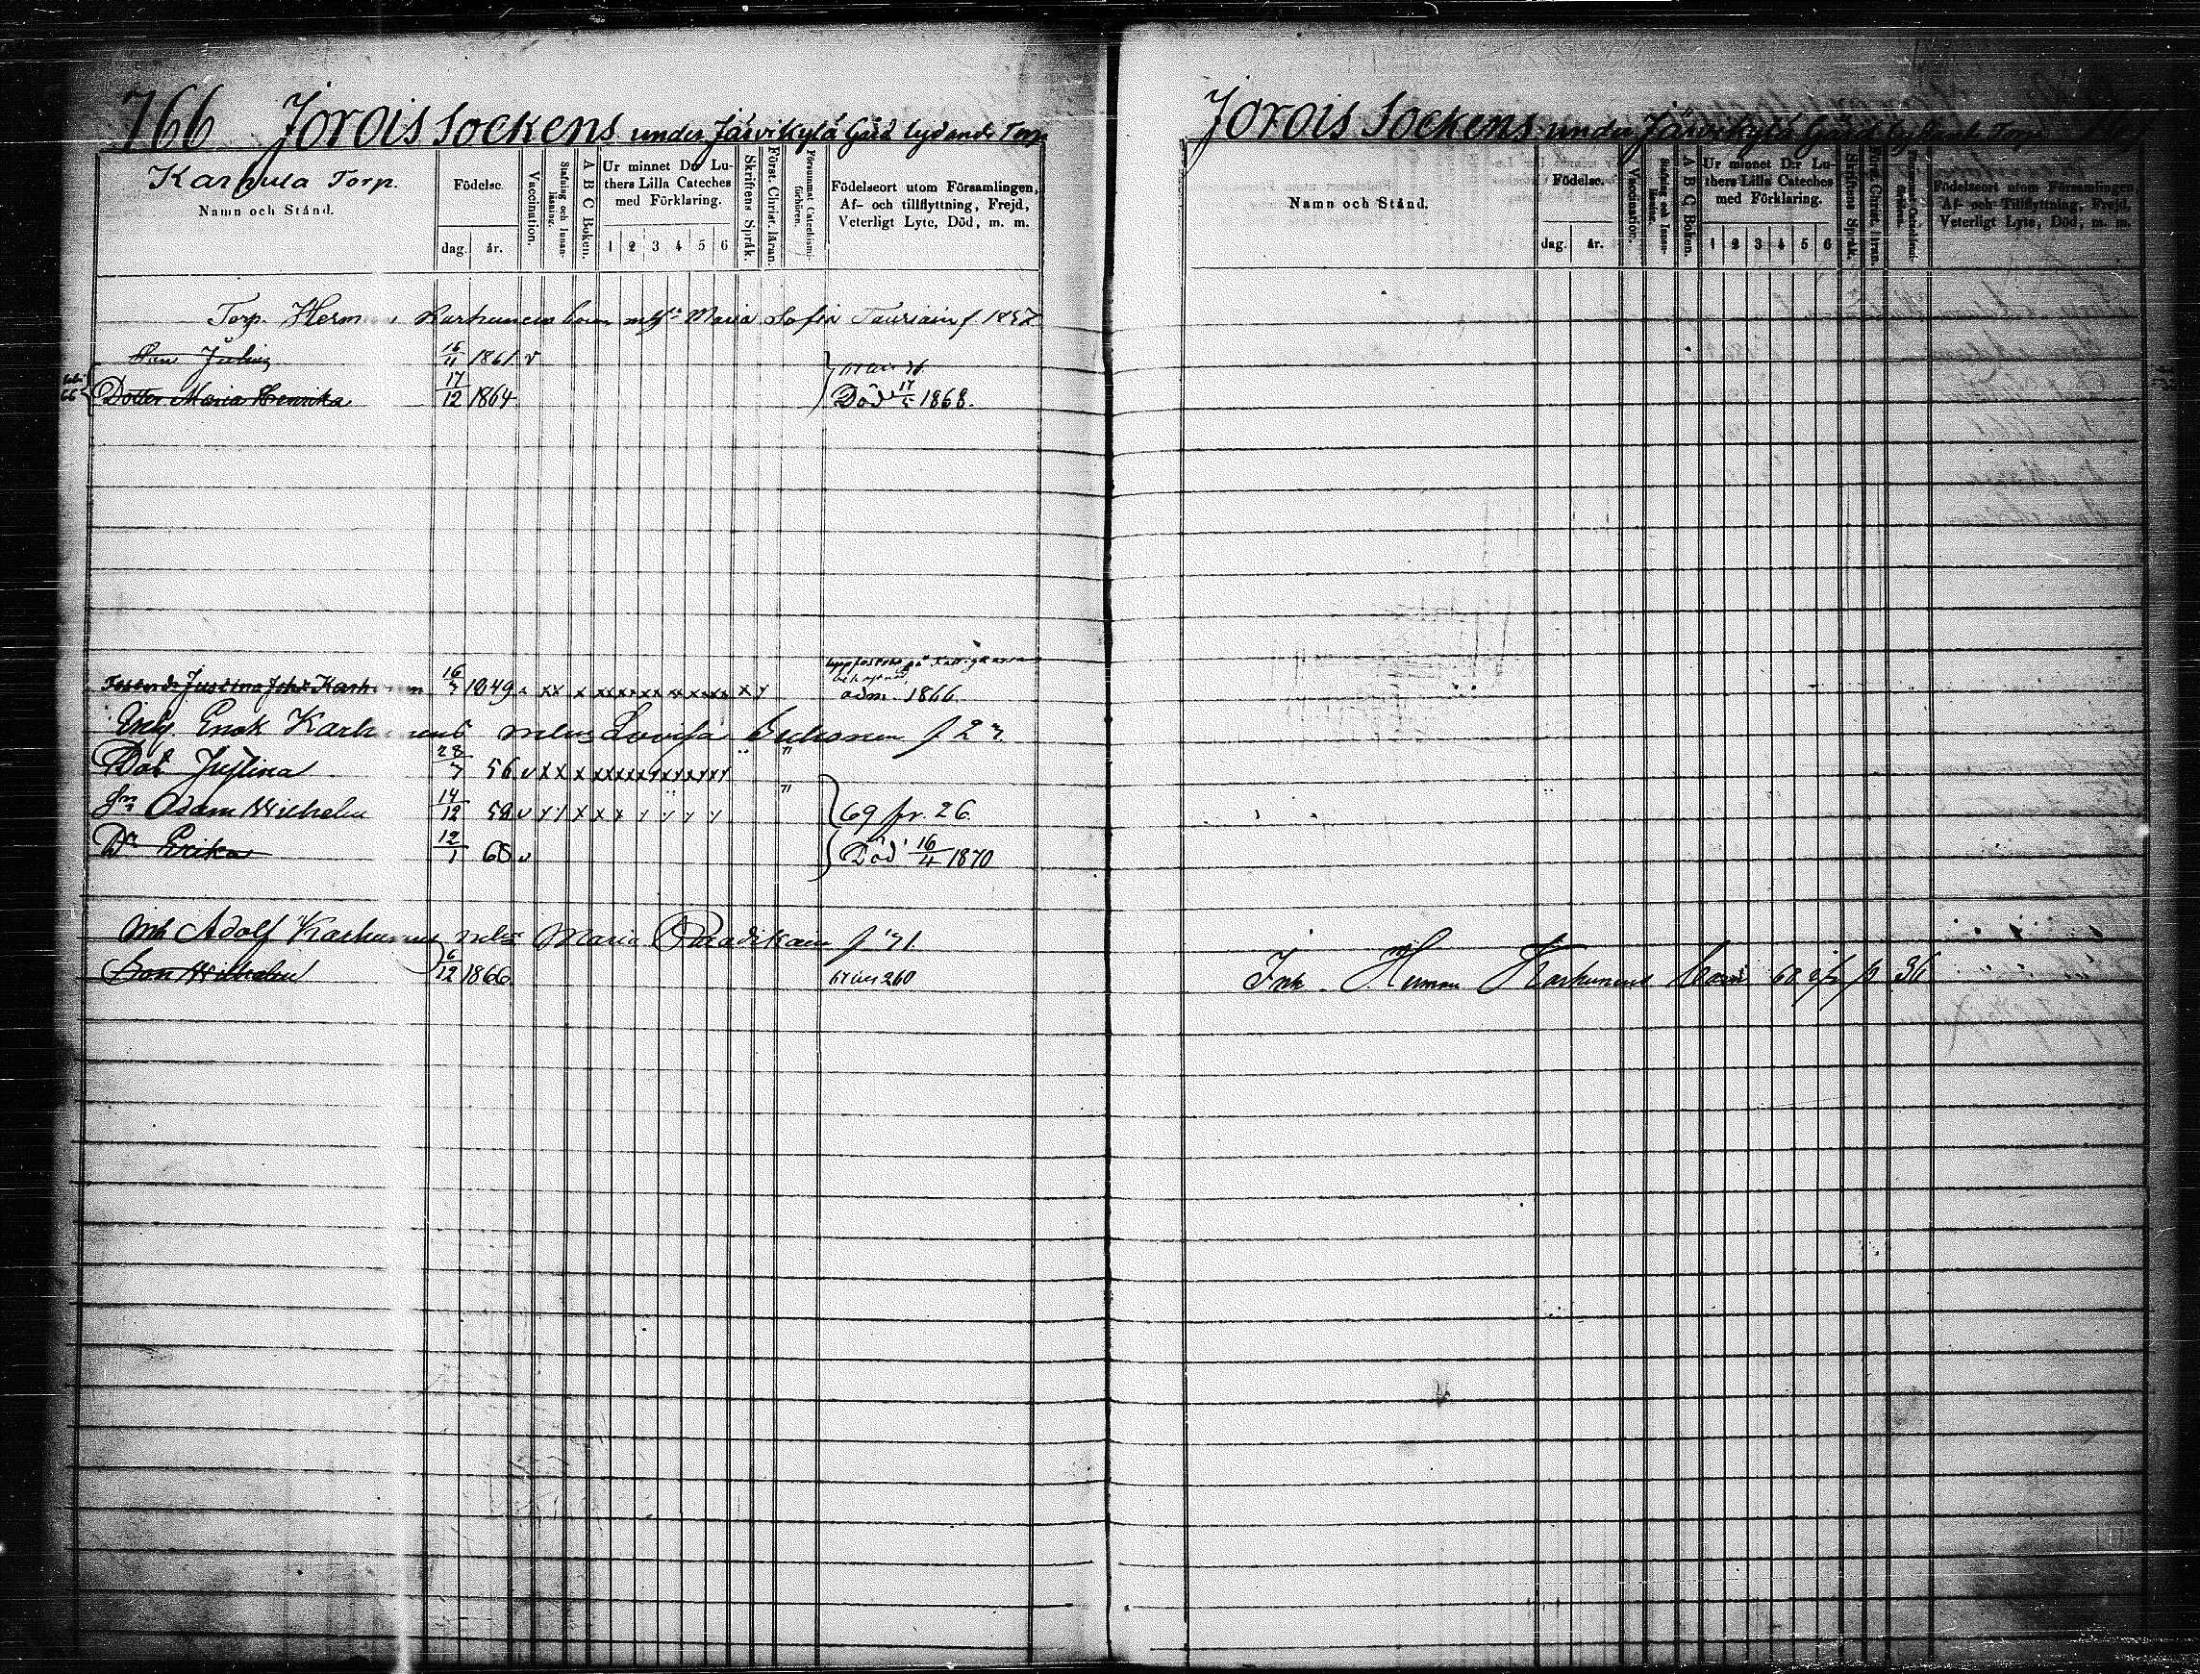 766 Jorois Sockens under Järvikylä Gård lydande Torp.
Karhula Torp.
Namn och Stånd.
Födelse.
dag. år.
Vaccination.
Stafning och Innanläsning.
A B C Boken.
Ur minnet D:r Luthers Lilla Cateches med Förklaring.
1 2 3 4 5 6
Skriftens Språk.
Först. Christ. läran.
Försummat Catechismiförhören.
Födelseort utom Församlingen,
Af- och tillflyttning, Frejd,
Veterligt Lyte, Död, m. m.
Torp. Herm Karhunens barn Maria Sofia f. 1857
Son Julius 15/11 1861 v
66 Dotter Maria Henrika 17/12 1864 Död 17/5 1868.
Justina Karhunen 16/7 1849 x xx x xxxxxxxxxxxx x x adm. 1866.
Enok Karhunens Lovisa f 27.
Dot Justina 28/7 56 v x x x xxxxxxxxxxxx
Sn Adam Wilhelm 14/12 59 v x x x x x 69 fr. 26
Dr Erika 12/1 65 v Död 16/4 1870
Inh Adolf Karhunens Maria f 71.
Son Wilhelm 6/12 1866 260
Jorois Sockens under Järvikylä Gård lydande Torp.
Namn och Stånd.
Födelse.
dag. år.
Vaccination.
Stafning och Innanläsning.
A B C Boken.
Ur minnet D:r Luthers Lilla Cateches med Förklaring.
1 2 3 4 5 6
Skriftens Språk.
Först. Christ. läran.
Försummat Catechismiförhören.
Födelseort utom Församlingen,
Af- och Tillflyttning, Frejd,
Veterligt Lyte, Död, m. m.
Inh. Herman Karhunens barn 68 p 36